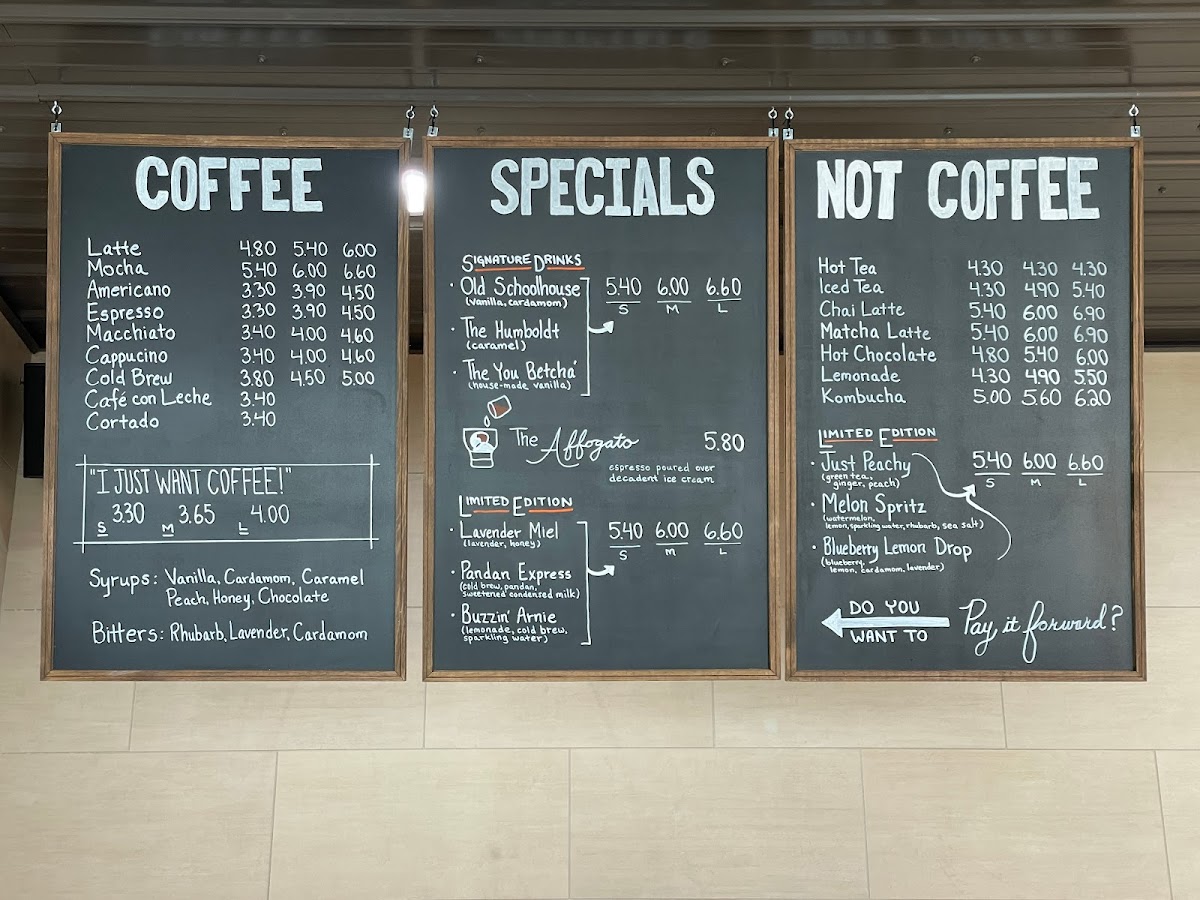 COFFEE
Latte 4.80 5.40 6.00
Mocha 5.40 6.00 6.60
Americano 3.30 3.90 4.50
Espresso 3.30 3.90 4.50
Macchiato 3.40 4.00 4.60
Cappucino 3.40 4.00 4.60
Cold Brew 3.80 4.50 5.00
Café con Leche 3.40
Cortado 3.40
"I JUST WANT COFFEE!"
S 3.30 M 3.65 L 4.00
Syrups: Vanilla, Cardamom, Caramel
Peach, Honey, Chocolate
Bitters: Rhubarb, Lavender, Cardamom
SPECIALS
SIGNATURE DRINKS
· Old Schoolhouse 5.40 6.00 6.60
(vanilla, cardamom) S M L
· The Humboldt
(caramel)
· The You Betcha'
(house-made vanilla)
The Affogato 5.80
espresso poured over
decadent ice cream
LIMITED EDITION
· Lavender Miel 5.40 6.00 6.60
(lavender, honey) S M L
· Pandan Express
(cold brew, pandan,
sweetened condensed milk)
· Buzzin' Arnie
(lemonade, cold brew,
sparkling water)
NOT COFFEE
Hot Tea 4.30 4.30 4.30
Iced Tea 4.30 4.90 5.40
Chai Latte 5.40 6.00 6.90
Matcha Latte 5.40 6.00 6.90
Hot Chocolate 4.80 5.40 6.00
Lemonade 4.30 4.90 5.50
Kombucha 5.00 5.60 6.20
LIMITED EDITION
· Just Peachy 5.40 6.00 6.60
(green tea, S M L
ginger, peach)
· Melon Spritz
(watermelon,
lemon, sparkling water, rhubarb, sea salt)
· Blueberry Lemon Drop
(blueberry,
lemon, cardamom, lavender)
DO YOU
WANT TO Pay it forward?